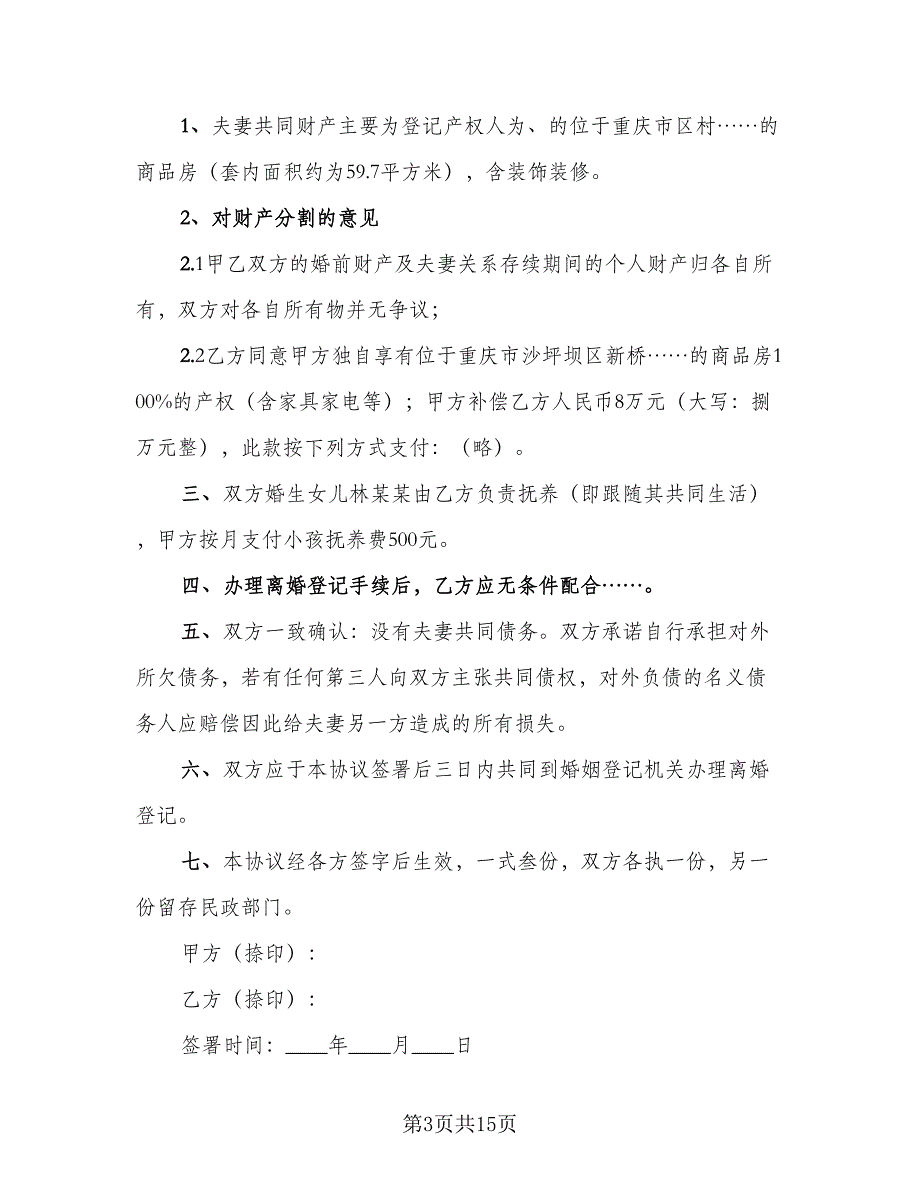 1、夫妻共同财产主要为登记产权人为、的位于重庆市区村……的
商品房（套内面积约为59.7平方米），含装饰装修。
2、对财产分割的意见
2.1甲乙双方的婚前财产及夫妻关系存续期间的个人财产归各自所
有，双方对各自所有物并无争议；
2.2乙方同意甲方独自享有位于重庆市沙坪坝区新桥……的商品房1
00%的产权（含家具家电等）；甲方补偿乙方人民币8万元（大写：捌
万元整），此款按下列方式支付：（略）。
三、双方婚生女儿林某某由乙方负责抚养（即跟随其共同生活）
，甲方按月支付小孩抚养费500元。
四、办理离婚登记手续后，乙方应无条件配合……。
五、双方一致确认：没有夫妻共同债务。双方承诺自行承担对外
所欠债务，若有任何第三人向双方主张共同债权，对外负债的名义债
务人应赔偿因此给夫妻另一方造成的所有损失。
六、双方应于本协议签署后三日内共同到婚姻登记机关办理离婚
登记。
七、本协议经各方签字后生效，一式叁份，双方各执一份，另一
份留存民政部门。
甲方（捺印）：
乙方（捺印）：
签署时间：____年____月____日
第3页共15页